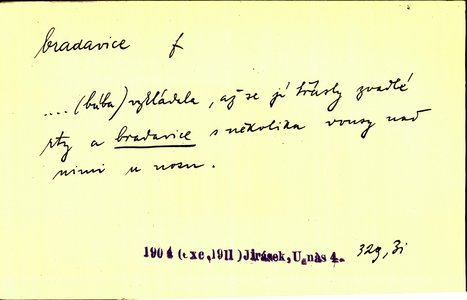 bradavice f
....(bába) vykládala, až se jí třásly zvadlé
rty a bradavice s několika vousy nad
nimi u nosu.
1904 (exc. 1911) Jirásek, U nás 4. 329, 3i